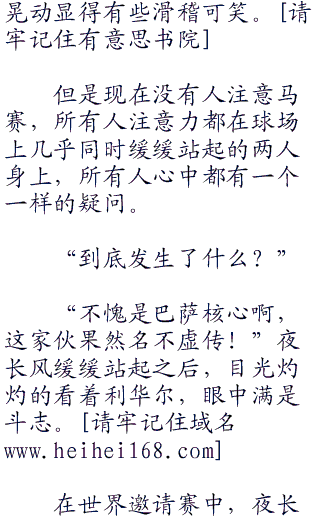 晃动显得有些滑稽可笑。[请
牢记住有意思书院]
但是现在没有人注意马
赛，所有人注意力都在球场
上几乎同时缓缓站起的两人
身上，所有人心中都有一个
一样的疑问。
“到底发生了什么？”
“不愧是巴萨核心啊，
这家伙果然名不虚传！”夜
长风缓缓站起之后，目光灼
灼的看着利华尔，眼中满是
斗志。[请牢记住域名
www.heihei168.com]
在世界邀请赛中，夜长